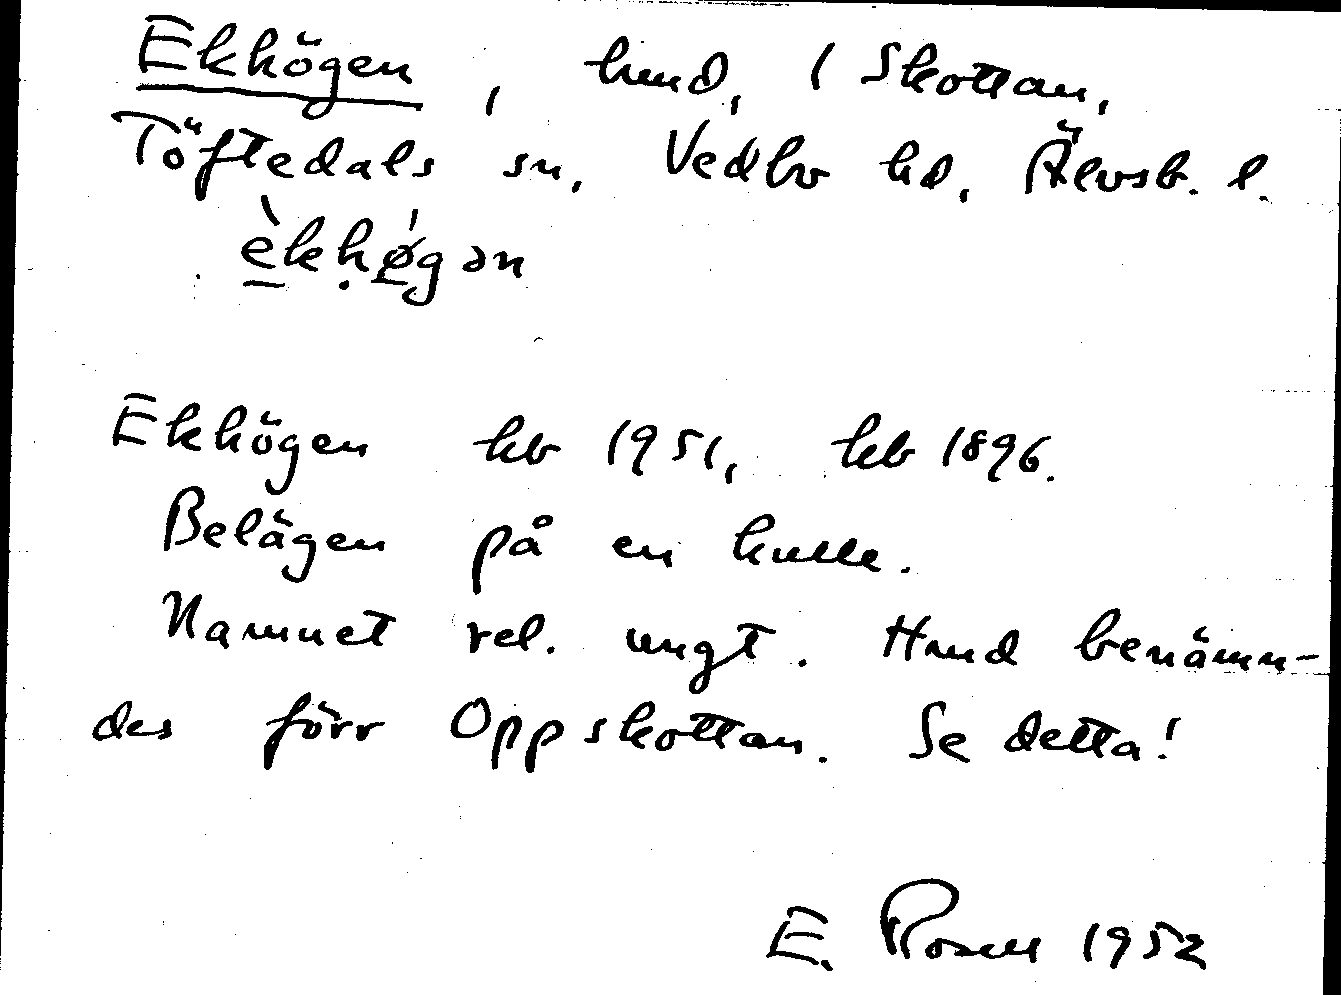 Ekhögen, hmd, 1 Skottan,
Töftedals sn, Vedbo hd, Älvsb. l.
è̱kḥǿ̱gən
Ekhögen kb 1951, kb 1896.
Belägen på en kulle.
Namnet rel. ungt. Hmd benämn-
des förr Oppskottan. Se detta!
E. Rosell 1952